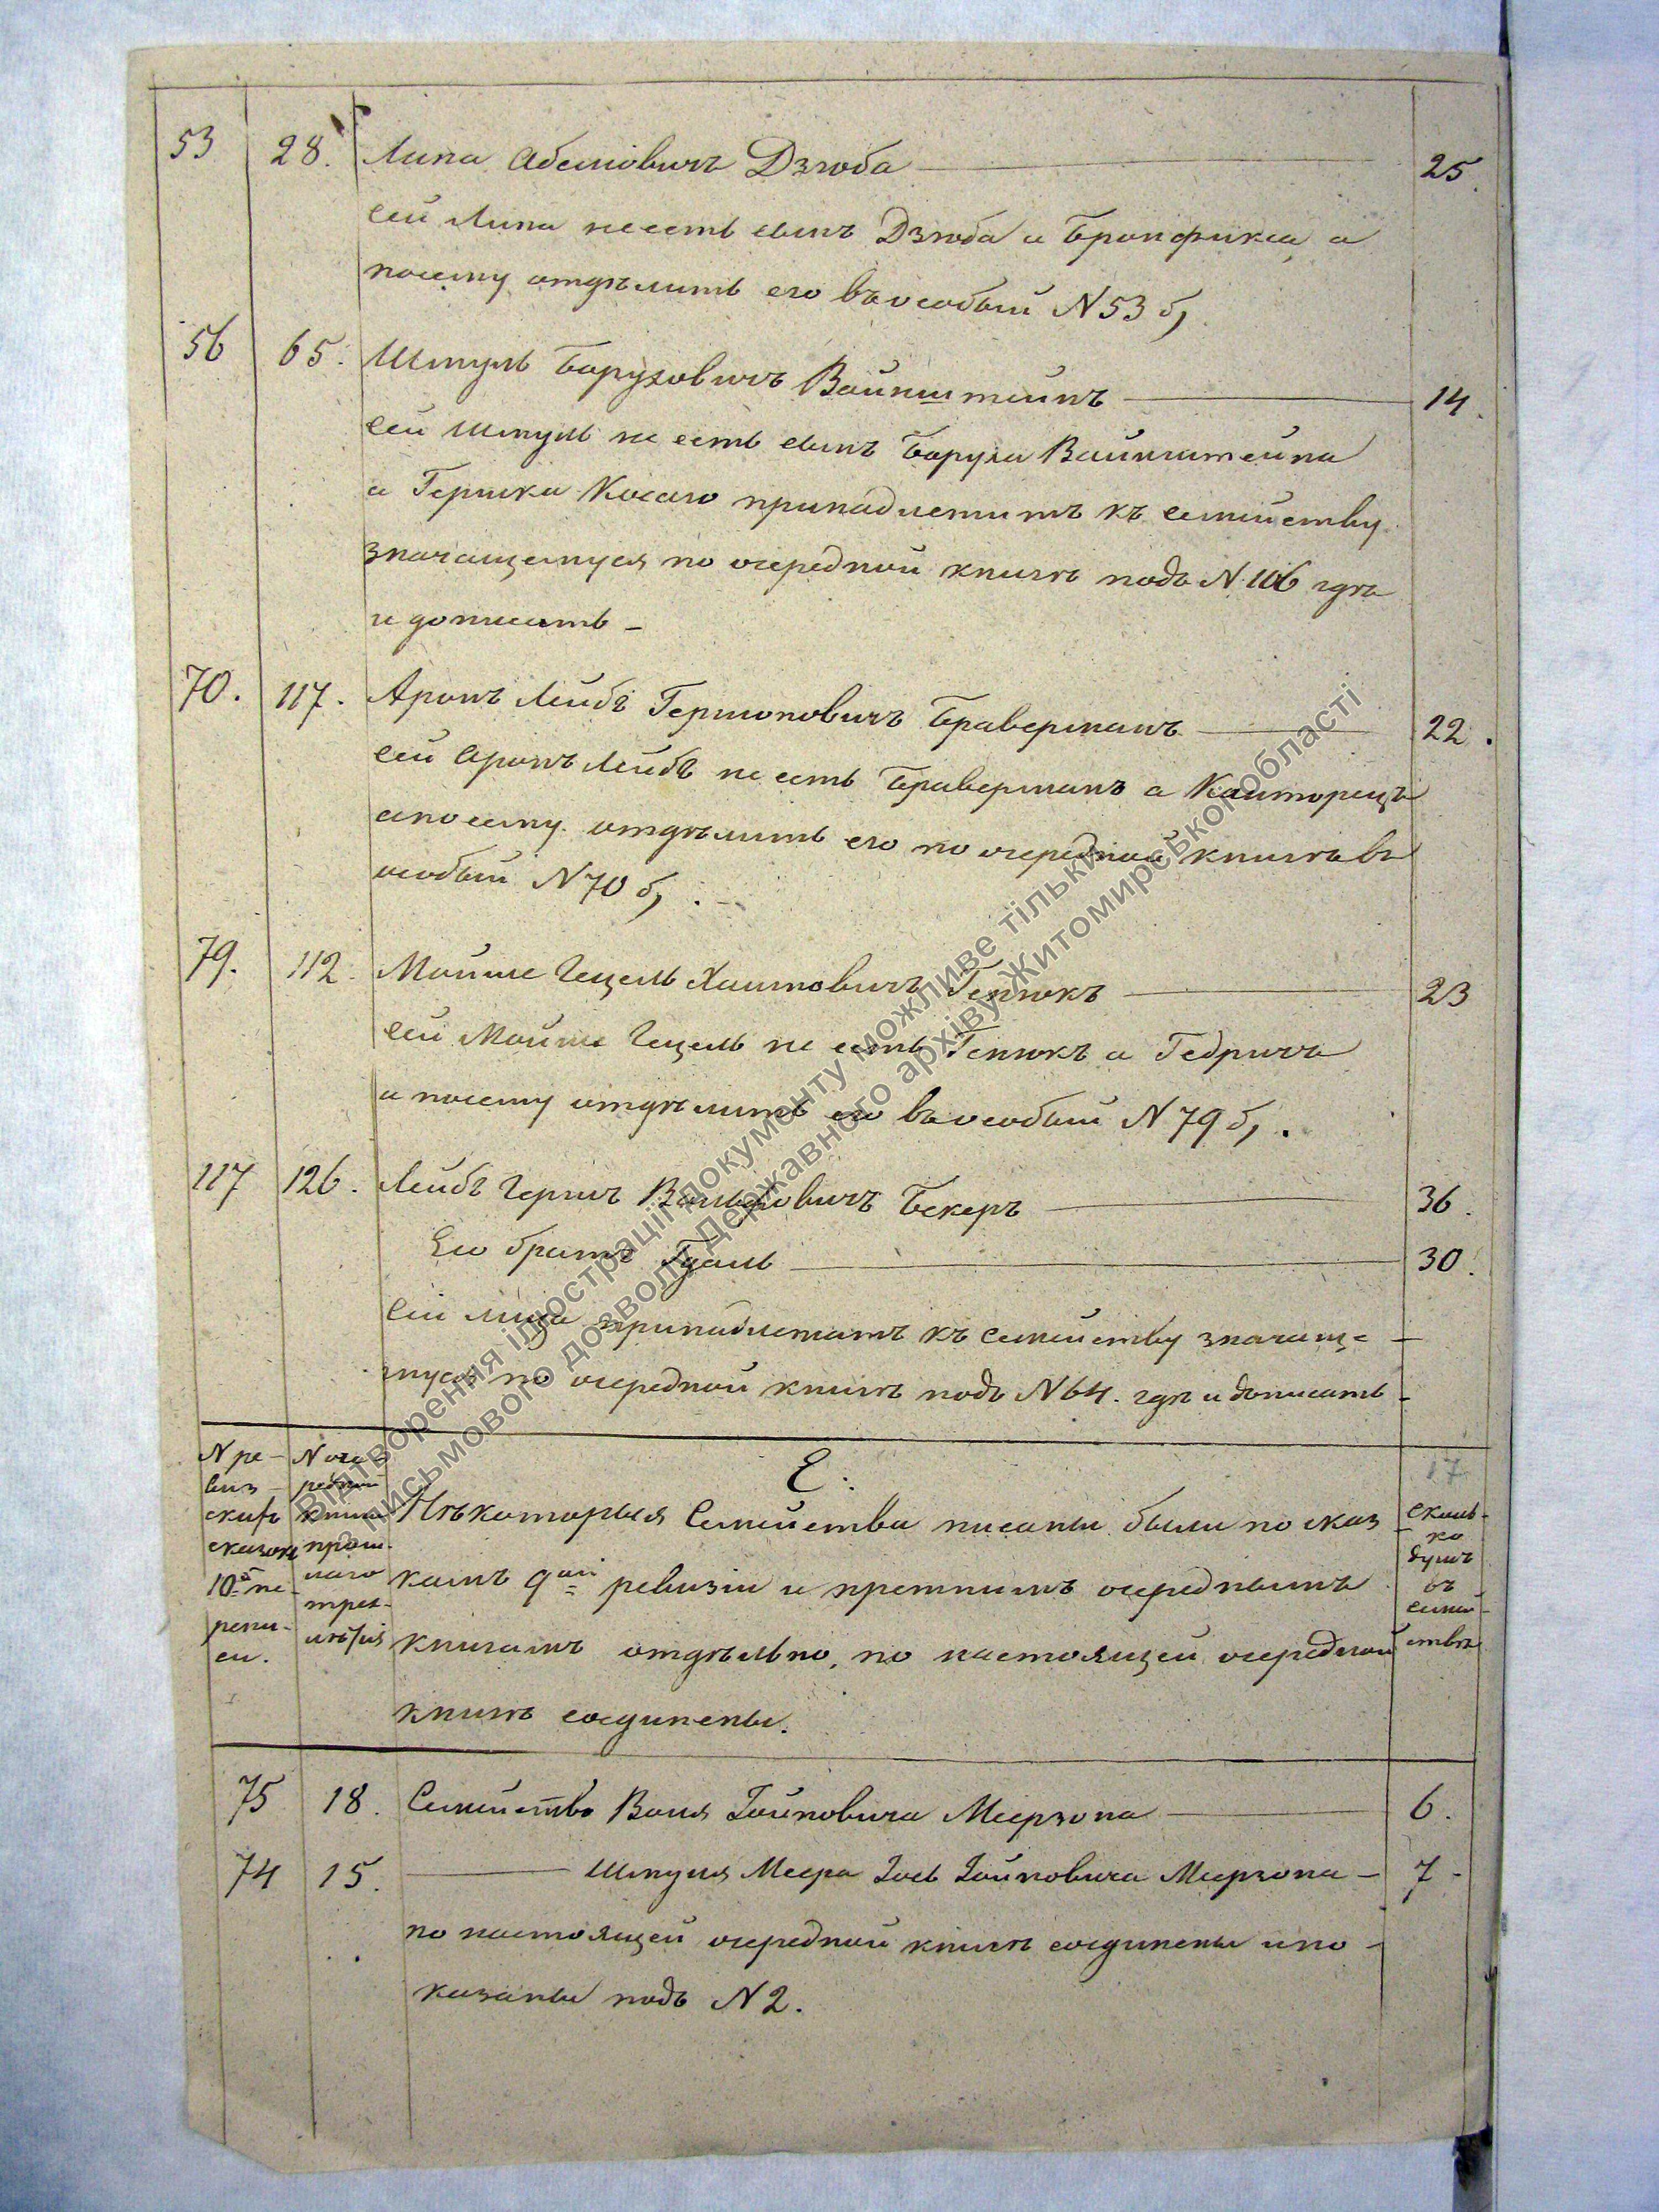 53 28. Липа Абемовичъ Дзюба 25.
сей Липа не есть сынъ Дзюба а Бронфикса, а
посему отдѣлить его въ особый N 53 б,
56 65. Шмуль Баруховичъ Вайнштейнъ 14.
сей Шмуль не есть сынъ Баруха Вайнштейна
а Гершка Косаго принадлежитъ къ семейству
значащемуся по очередной книгѣ подъ N 106 гдѣ
и дописать
70. 117. Аронъ Лейбъ Гершоновичъ Браверманъ 22.
сей Аронъ Лейбъ не есть Браверманъ а Канторецъ
а посему отдѣлить его по очередной книгѣ въ
особый N 70 б,.
79. 112. Мойше Гецель Хаимовичъ Генюкъ 23
сей Мойше Гецель не есть Генюкъ а Гедричъ
а посему отдѣлить его въ особый N 79 б,.
117 126. Лейбъ Гершъ Вольфовичъ Бекеръ 36.
Его братъ Гдаль 30.
Сіи лица принадлежатъ къ семейству значаще-
муся по очередной книгѣ подъ N 64. гдѣ и дописать
17
Е.
N ре-
виз-
скихъ
сказокъ
10й пе-
репи-
си.
N оче-
редной
книги
прош-
лаго
трех-
лѣтія
Нѣкоторыя Семейства писаны были по сказ-
камъ 9ой ревизіи и прежнимъ очереднымъ
книгамъ отдѣльно, по настоящей очередной
книгѣ соединены.
Сколь-
ко
душъ
въ
семей-
ствѣ
75 18. Семейство Воля Іойновича Меерзона 6.
74 15. Шмуля Меера Іось Іойновича Меерзона 7
по настоящей очередной книгѣ соединены и по-
казаны подъ N 2.
Відтворення ілюстрації документу можливе тільки
з письмового дозволу Державного архіву Житомирської області